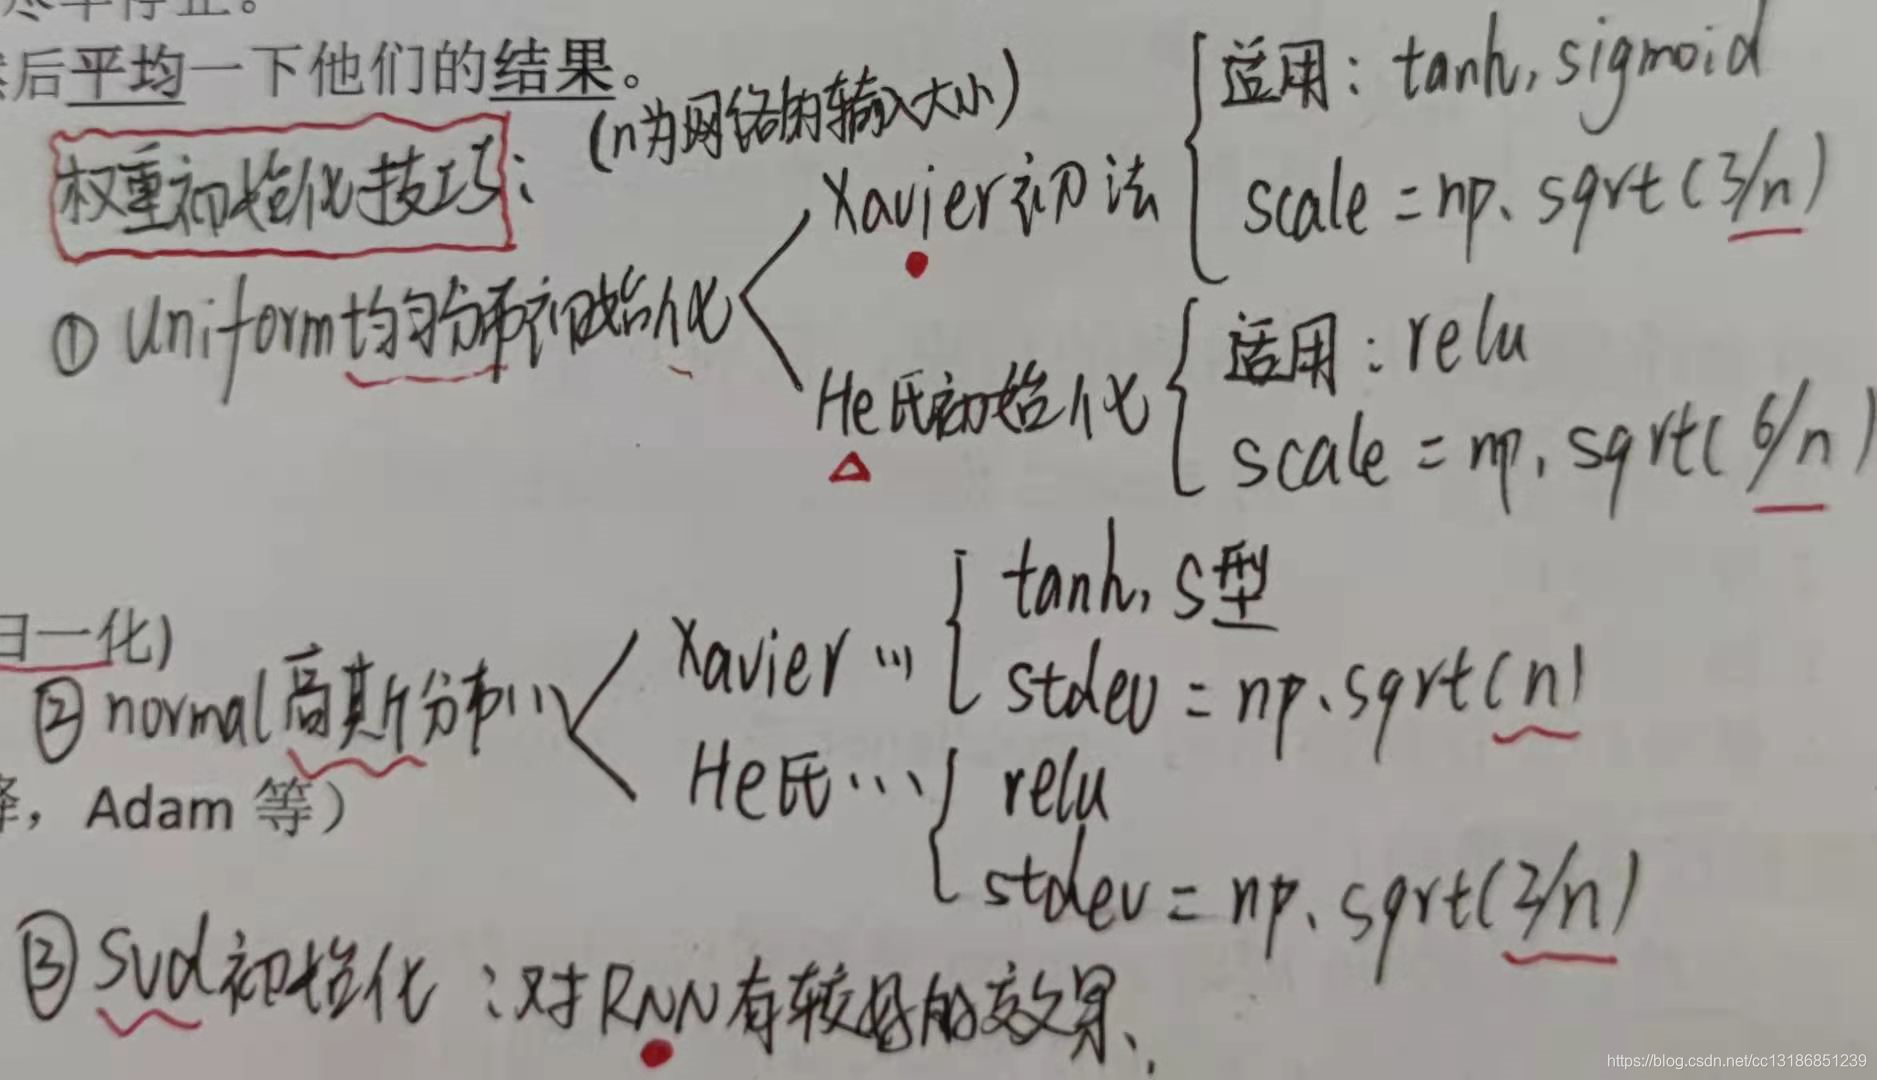 后平均一下他们的结果。
(n为网络的输入大小)
权重初始化技巧:
适用: tanh, sigmoid
Xavier初法
scale = np. sqrt(3/n)
① uniform均匀分布初始化
适用: relu
He氏初始化
scale = np. sqrt(6/n)
tanh, S型
归一化)
Xavier ...
② normal高斯分布...
stdev = np. sqrt(n)
He氏...
relu
, Adam 等)
stdev = np. sqrt(2/n)
③ Svd初始化: 对RNN有较好的效果、
https://blog.csdn.net/cc13186851239